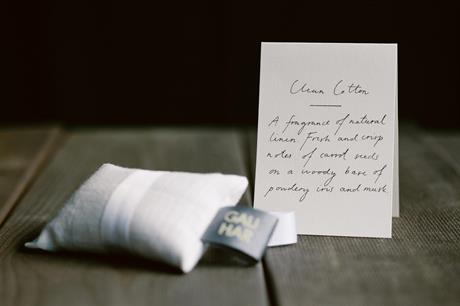 Clean Cotton
A fragrance of natural
linen. Fresh and crisp
notes of carrot seeds
on a woody base of
powdery iris and musk
GAU
HAR